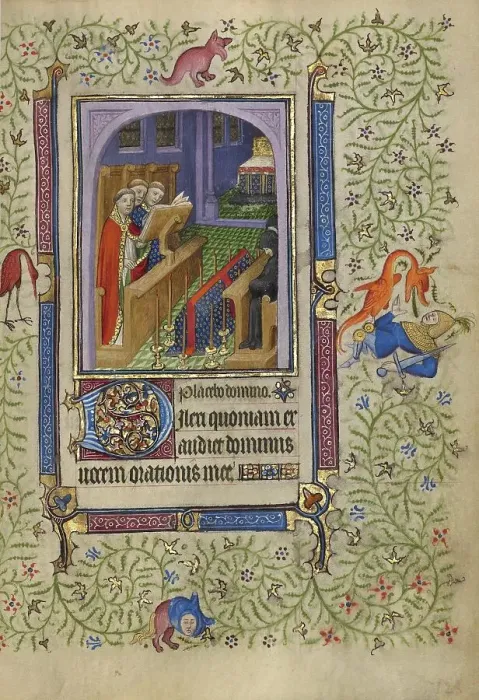 Placebo domino.
Dilexi quoniam ex
audiet dominus
uocem orationis mee